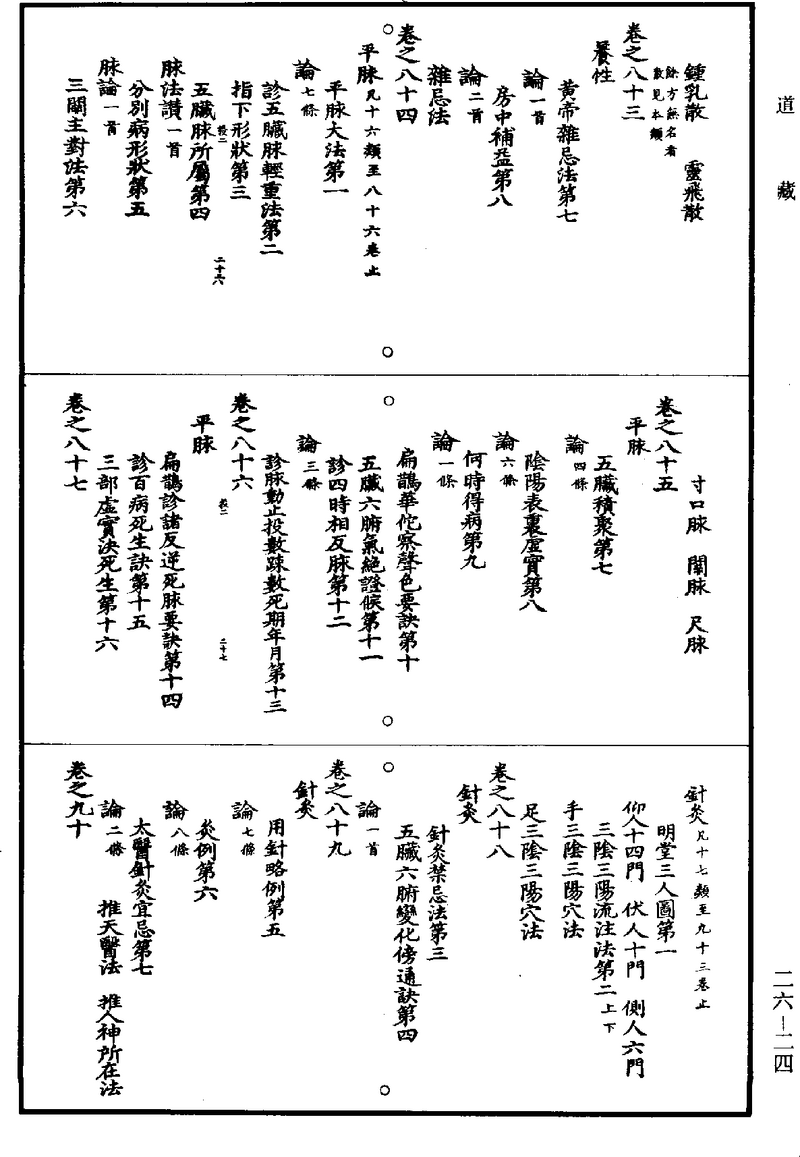 道藏
鍾乳散 靈飛散
餘方無名者
散見本類
卷之八十三
養性
黃帝雜忌法第七
論一首
房中補益第八
論二首
雜忌法
卷之八十四
平脉凡十六類至八十六卷止
平脉大法第一
論七條
診五臟脉輕重法第二
指下形狀第三
二十六
五臟脉所屬第四
脉法讚一首
分別病形狀第五
脉論一首
三關主對法第六
寸口脉 關脉 尺脉
卷之八十五
平脉
五臟積聚第七
論四條
陰陽表裏虛實第八
論六條
何時得病第九
論一條
扁鵲華佗察聲色要訣第十
五臟六腑氣絕證候第十一
診四時相反脉第十二
論三條
診脉動止投數踈數死期年月第十三
卷之八十六
二十七
平脉
扁鵲診諸反逆死脉要訣第十四
診百病死生訣第十五
三部虛實決死生第十六
卷之八十七
針灸凡十七類至九十三卷止
明堂三人圖第一
仰人十四門 伏人十門 側人六門
三陰三陽流注法第二上下
手三陰三陽穴法
足三陰三陽穴法
卷之八十八
針灸
針灸禁忌法第三
五臟六腑變化傍通訣第四
論一首
卷之八十九
針灸
用針略例第五
論七條
灸例第六
論八條
太醫針灸宜忌第七
論二條 推天醫法 推人神所在法
卷之九十
二六—二四